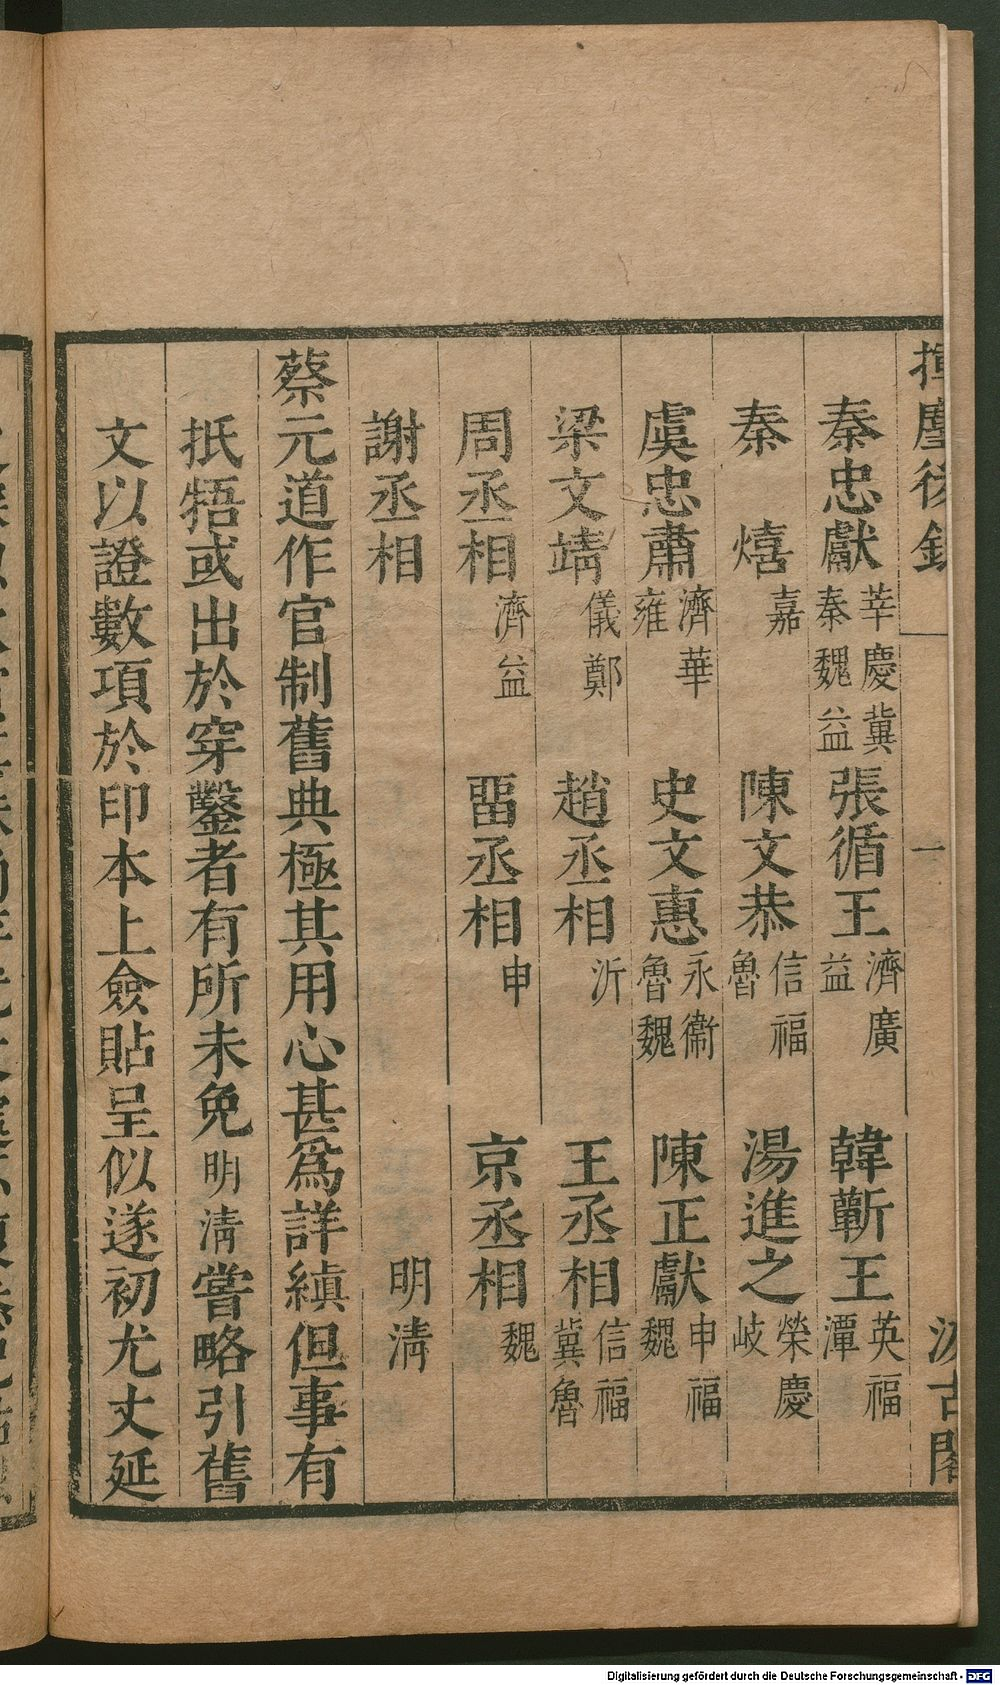 揮麈後錄 一 汲古閣
秦忠獻 莘慶冀秦魏益 張循王 濟廣益 韓蘄王 英福潭
秦熺 嘉 陳文恭 信福魯 湯進之 榮慶岐
虞忠肅 濟華雍 史文惠 永衞魯魏 陳正獻 申福魏
梁文靖 儀鄭 趙丞相 沂 王丞相 信福冀魯
周丞相 濟益 畱丞相 申 京丞相 魏
謝丞相 明清
蔡元道作官制舊典極其用心甚爲詳縝但事有
抵牾或出於穿鑿者有所未免明清嘗略引舊
文以證數項於印本上僉貼呈似遂初尤丈延
Digitalisierung gefördert durch die Deutsche Forschungsgemeinschaft - DFG